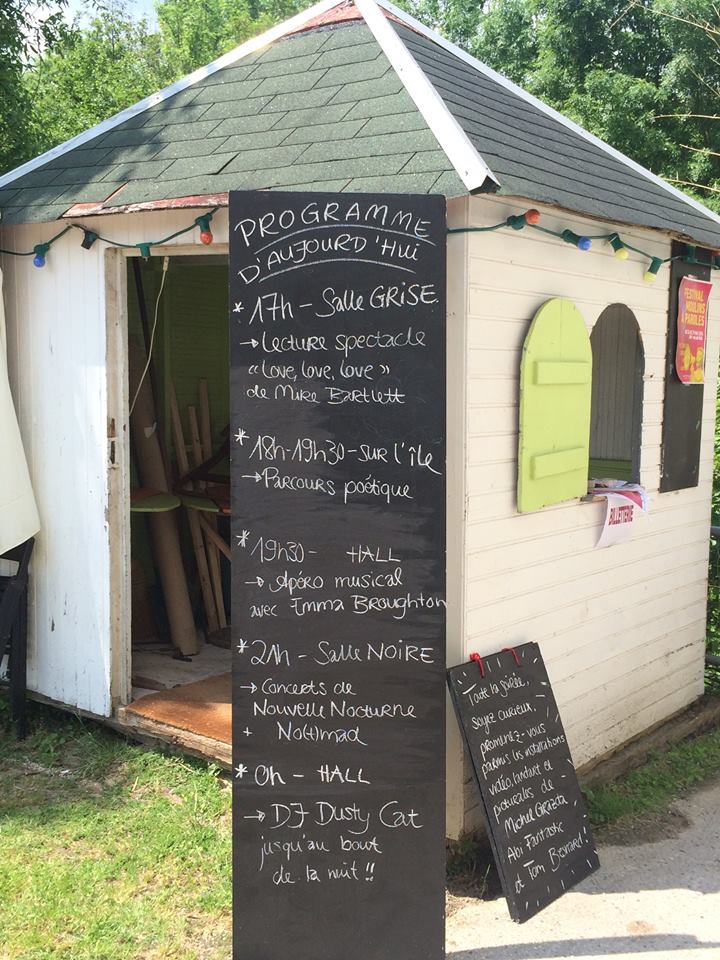 PROGRAMME
D'AUJOURD'HUI
* 17h - Salle GRISE
→ Lecture spectacle
« Love, love, love »
de Mike Bartlett
* 18h-19h30 - SUR l'île
→ Parcours poétique
* 19h30 - HALL
→ Apéro musical
avec Emma Broughton
* 21h - Salle NOIRE
→ Concerts de
Nouvelle Nocturne
+ No(t)mad
* 0h - HALL
→ DJ Dusty Cat
jusqu'au bout
de la nuit !!
Toute la soirée,
soyez curieux,
promenez-vous
parmi les installations
vidéo, et
picturales de
Michel
Ahi Fantastic
et Tom !
FESTIVAL
MOULINS
À PAROLES
BILLETTERIE